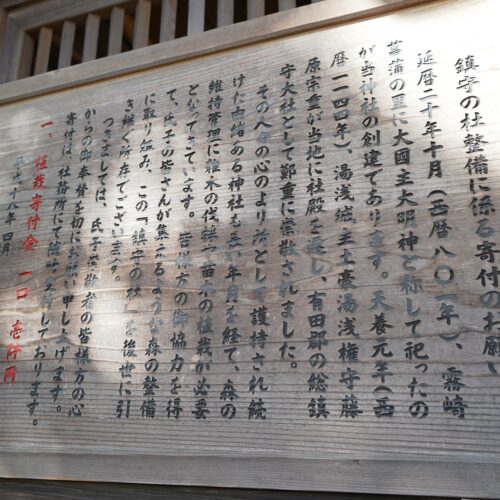 鎮守の杜整備に係る寄付のお願い
延暦二十年十月(西暦八〇一年)、霧崎
菖蒲の里に大國主大明神と称して祀ったの
が当神社の創建であります。天養元年(西
暦一一四四年)、湯浅城主土豪湯浅権守藤
原宗重が当地に社殿を遷し、有田郡の総鎮
守大社として鄭重に崇敬されました。
その人々の心のより所として護持され続
けた由緒ある神社も長い年月を経て、森の
維持管理に雑木の伐採や苗木の植栽が必要
となってきています。皆様方の御協力を得
て、氏子の皆さんが集まるような森の整備
に取り組み、この「鎮守の杜」を後世に引
き継ぐ所存でございます。
つきましては、氏子崇敬者の皆様方の心
からの御奉賛を切にお願い申し上げます。
寄付は、社務所にて随時受付しております。
一、植栽寄付金 一口 壱仟円
平成十八年四月